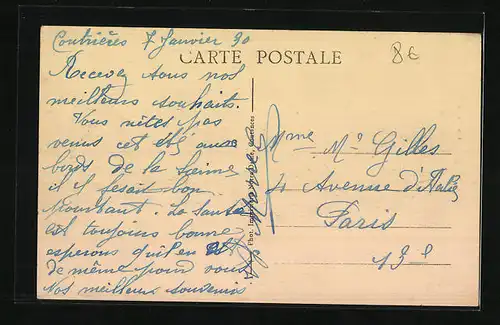 7 Janvier 30
CARTE POSTALE
8€
Recevez tous nos
meilleurs souhaits.
Vous n'êtes pas
venus cet été aux
bords de la Seine
il y fesait bon
pourtant. La santé
est toujours bonne
esperons qu'il en est
de même pour vous
Nos meilleurs souvenirs
Mme Mr Gilles
4 Avenue d'Italie
Paris
13e